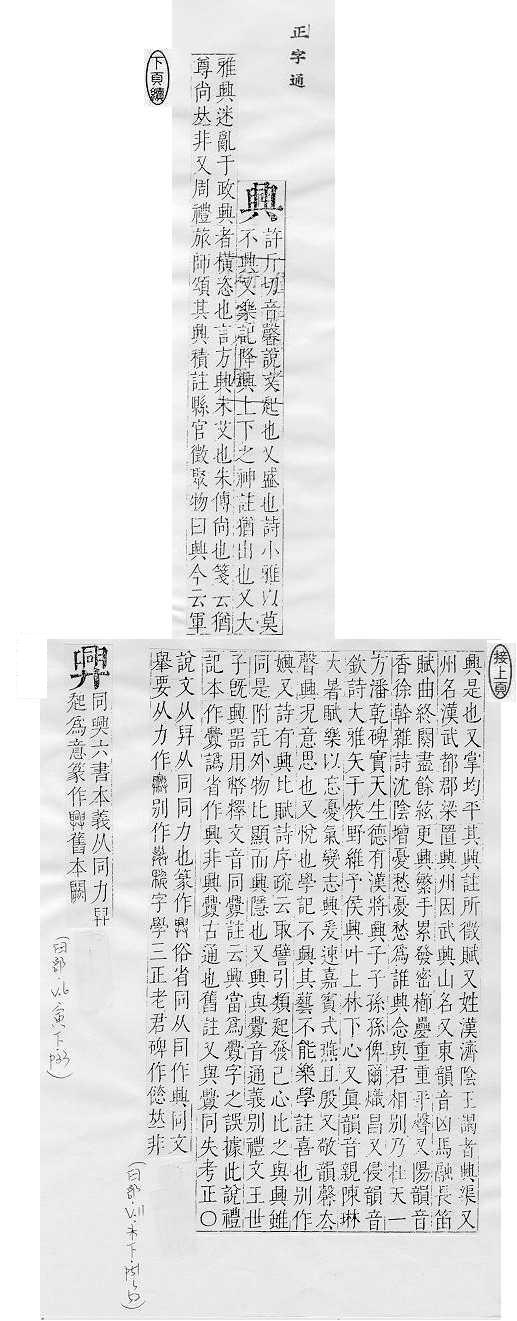 正字通
興
許斤切音馨說文起也又盛也詩小雅以莫
不興又樂記降興上下之神註猶出也又大
雅興迷亂于政興者橫恣也言方興未艾也朱傳尚也箋云猶
尊尚𠀤非又周禮旅師頒其興積註縣官徵聚物曰興今云軍
下頁續
接上頁
興是也又掌均平其興註所徵賦又姓漢濟陰王謁者興渠又
州名漢武都郡梁置興州因武興山名又東韻音凶馬融長笛
賦曲終闋盡餘絃更興繁手累發密櫛疊重重平聲又陽韻音
香徐幹雜詩沈陰增憂愁憂愁爲誰興念與君相別乃在天一
方潘乾碑實天生德有漢將興子子孫孫俾爾熾昌又侵韻音
歆詩大雅矢于牧野維予侯興叶上林下心又眞韻音親陳琳
大暑賦樂以忘憂氣變志興爰速嘉賓式燕且殷又敬韻馨去
聲興況意思也又悅也學記不興其藝不能樂學註喜也別作
嬹又詩有興比賦詩序疏云取譬引類起發己心比之與興雖
同是附託外物比顯而興隱也又興與釁音通義別禮文王世
子旣興器用幣釋文音同釁註云興當爲釁字之誤據此說禮
記本作釁譌省作興非興釁古通也舊註又與釁同失考正〇
說文从舁从同同力也篆作興俗省同从同作興同文
舉要从力作 別作 字學三正老君碑作 𠀤非
同興六書本義从同力舁
起爲意篆作興舊本闕
(臼部.V.6.寅下P.33)
(臼部.V.11.未下.P.51~52)